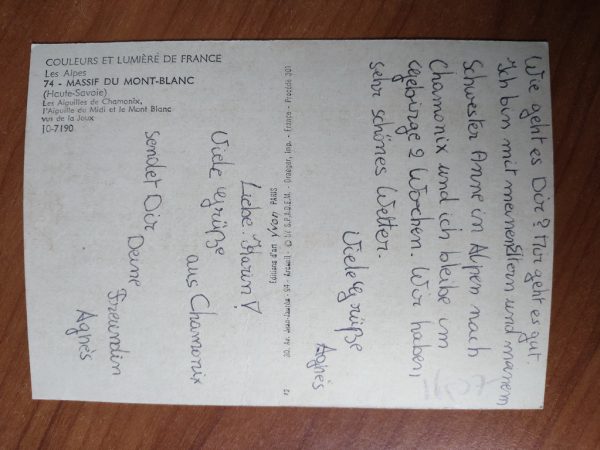 COULEURS ET LUMIÈRE DE FRANCE
Les Alpes
74 - MASSIF DU MONT-BLANC
(Haute-Savoie)
Les Aiguilles de Chamonix,
l'Aiguille du Midi et le Mont Blanc
vus de la Joux
10-7190
Liebe Karin!
Viele Grüße
aus Chamonix
sendet Dir Deine
Freundin
Agnès
Imp. - France - Procédé 301
PARIS
Wie geht es Dir? Mir geht es gut.
Ich bin mit meinen Eltern und meinem
Schwester Anne in Alpen nach
Chamonix und ich bleibe im
Gebirge 2 Wochen. Wir haben,
sehr schönes Wetter.
Viele Grüße
Agnès